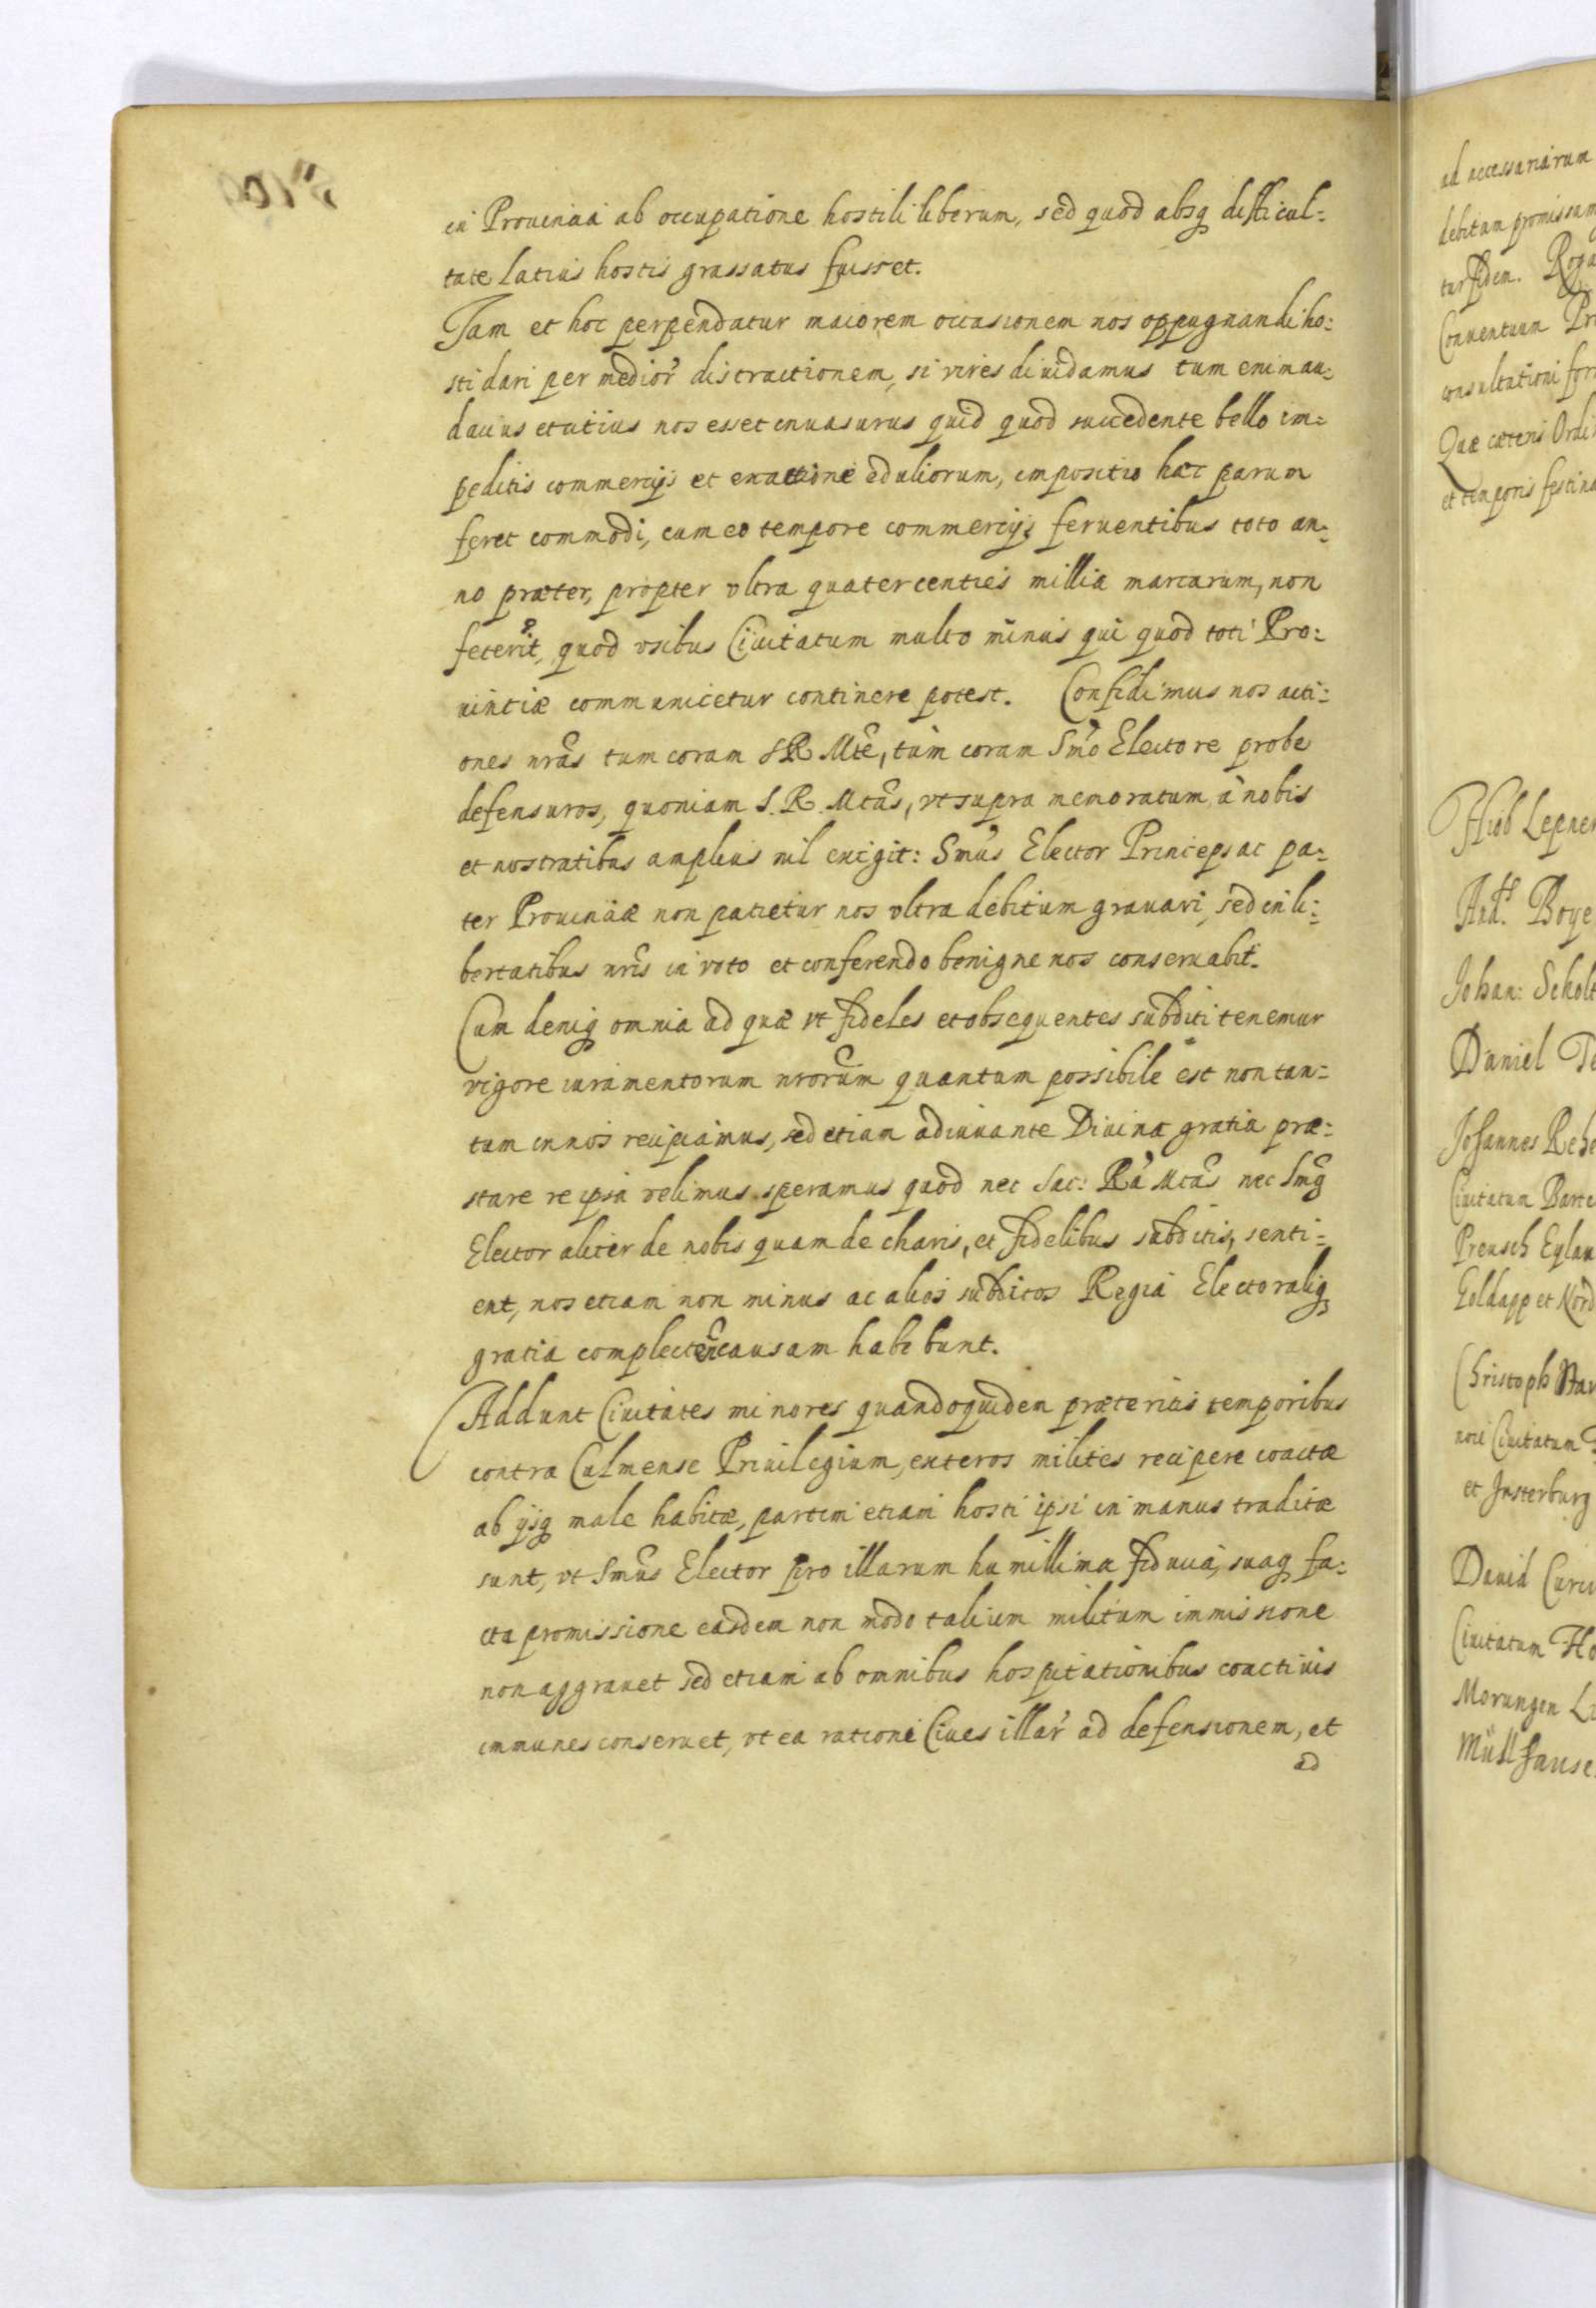 in Prouinciâ ab occupatione hostili liberum, sed quod absq; difficul=
tate latius hostis grassatus fuisset.
Jam et hoc perpendatur maiorem occasionem nos oppugnandi ho=
sti dari per medior' distractionem, si vires diuidamus tum enim au=
dacius et citius nos esset inuasurus quid quod succedente bello im=
peditis commercijs et exactione eduliorum, impositio hæc parum
feret commodi, cum eo tempore commercijs feruentibus toto an=
no præter, propter vltra quatercenties millia marcarum, non
fecerit, quod vsibus Ciuitatum multo minus qui quod toti Pro=
uinciæ communicetur continere potest. Confidimus nos acti=
ones nrãs tum coram S R Mte, tùm coram Smo Electore probe
defensuros, quoniam S. R. Mtas, vt supra memoratum à nobis
et nostratibus amplius nil exigit: Smus Elector Princeps ac pa=
ter Prouinciæ non patietur nos vltra debitum grauari, sed in li=
bertatibus nris in voto et conferendo benigne nos conseruabit.
Cum deniq; omnia ad quæ vt fideles et obsequentes subditi tenemur
vigore iuramentorum nrorum quantum possibile est non tan=
tum in nos recipiamus, sed etiam adiuuante Diuina gratia præ=
stare re ipsa velimus speramus quod nec Sac: Ra Mtas nec Smg
Elector aliter de nobis quam de charis, et fidelibus subditis, senti=
ent, nos etiam non minus ac alios subditos Regiâ Electoraliq;
gratia complectẽ causam habebunt.
Addunt Ciuitates minores quandoquidem præteritis temporibus
contra Culmense Priuilegium, exteros milites recipere coactæ
ab ijsq; male habitæ, partim etiam hosti ipsi in manus traditæ
sunt, vt Smus Elector pro illarum humillima fiduciâ, suaq; fa=
cta promissione easdem non modo talium militum immissione
non aggrauet sed etiam ab omnibus hospitationibus coactiuis
immunes conseruet, vt ea ratione Ciues illar' ad defensionem, et
ad
ad accessariarum
debitam promissam
tur fidem. Roga
Conuentuum Pr
consultationi for
Quæ cæteris Ordi
et temporis festina
Hiob Lepner
And. Boye
Johan: Scholt
Daniel Te
Johannes Rehe
Ciuitatum Barte
Preusch Eylau
Goldapp et Nord
Christoph
Ciuitatum
et Insterburg
Dauid Curi
Ciuitatum Ho
Morungen Li
Mülhause